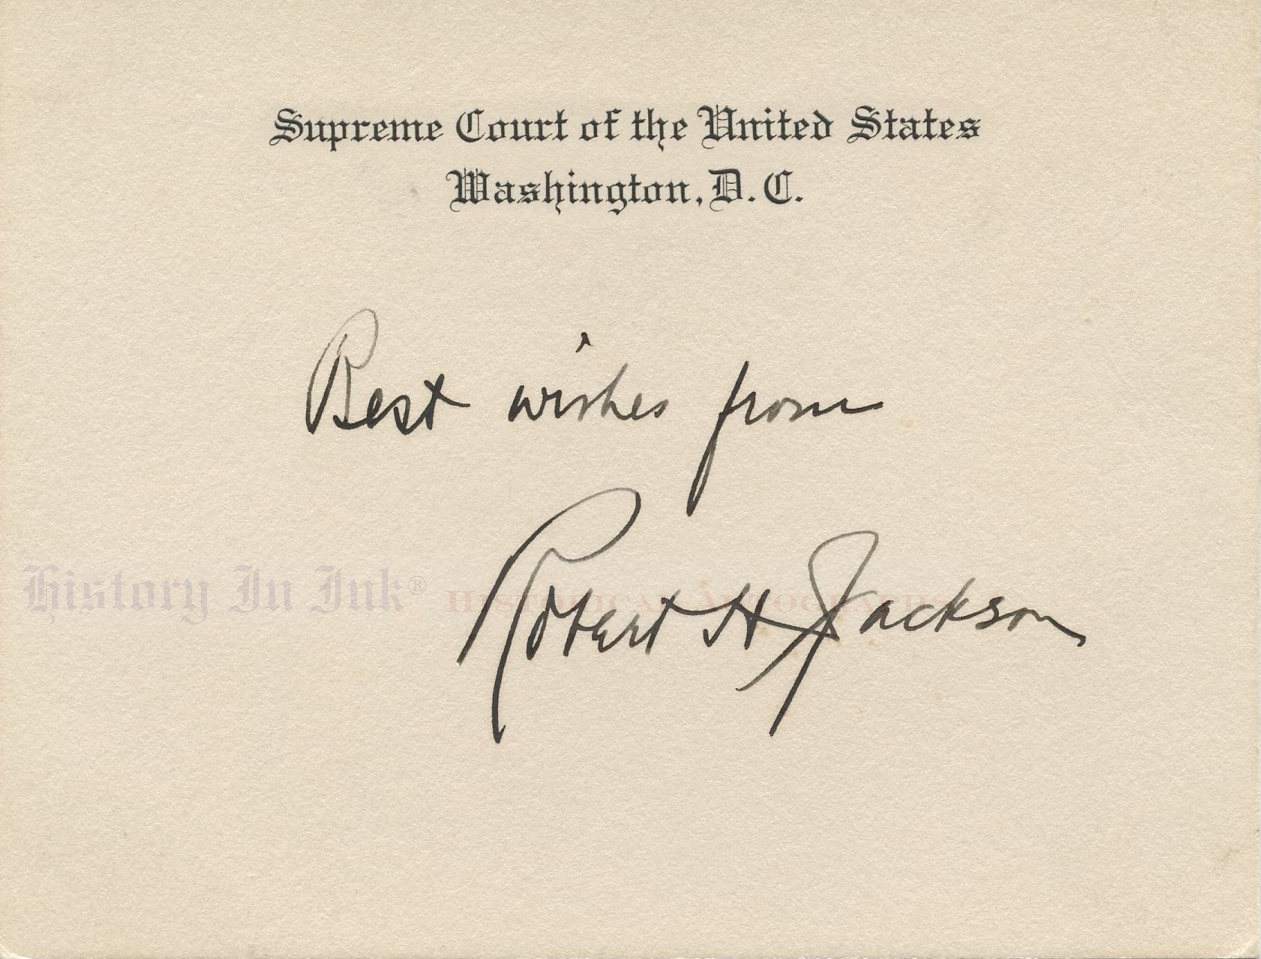 Supreme Court of the United States
Washington, D. C.
Best wishes from
History In Ink® Historical Autographs
Robert H Jackson